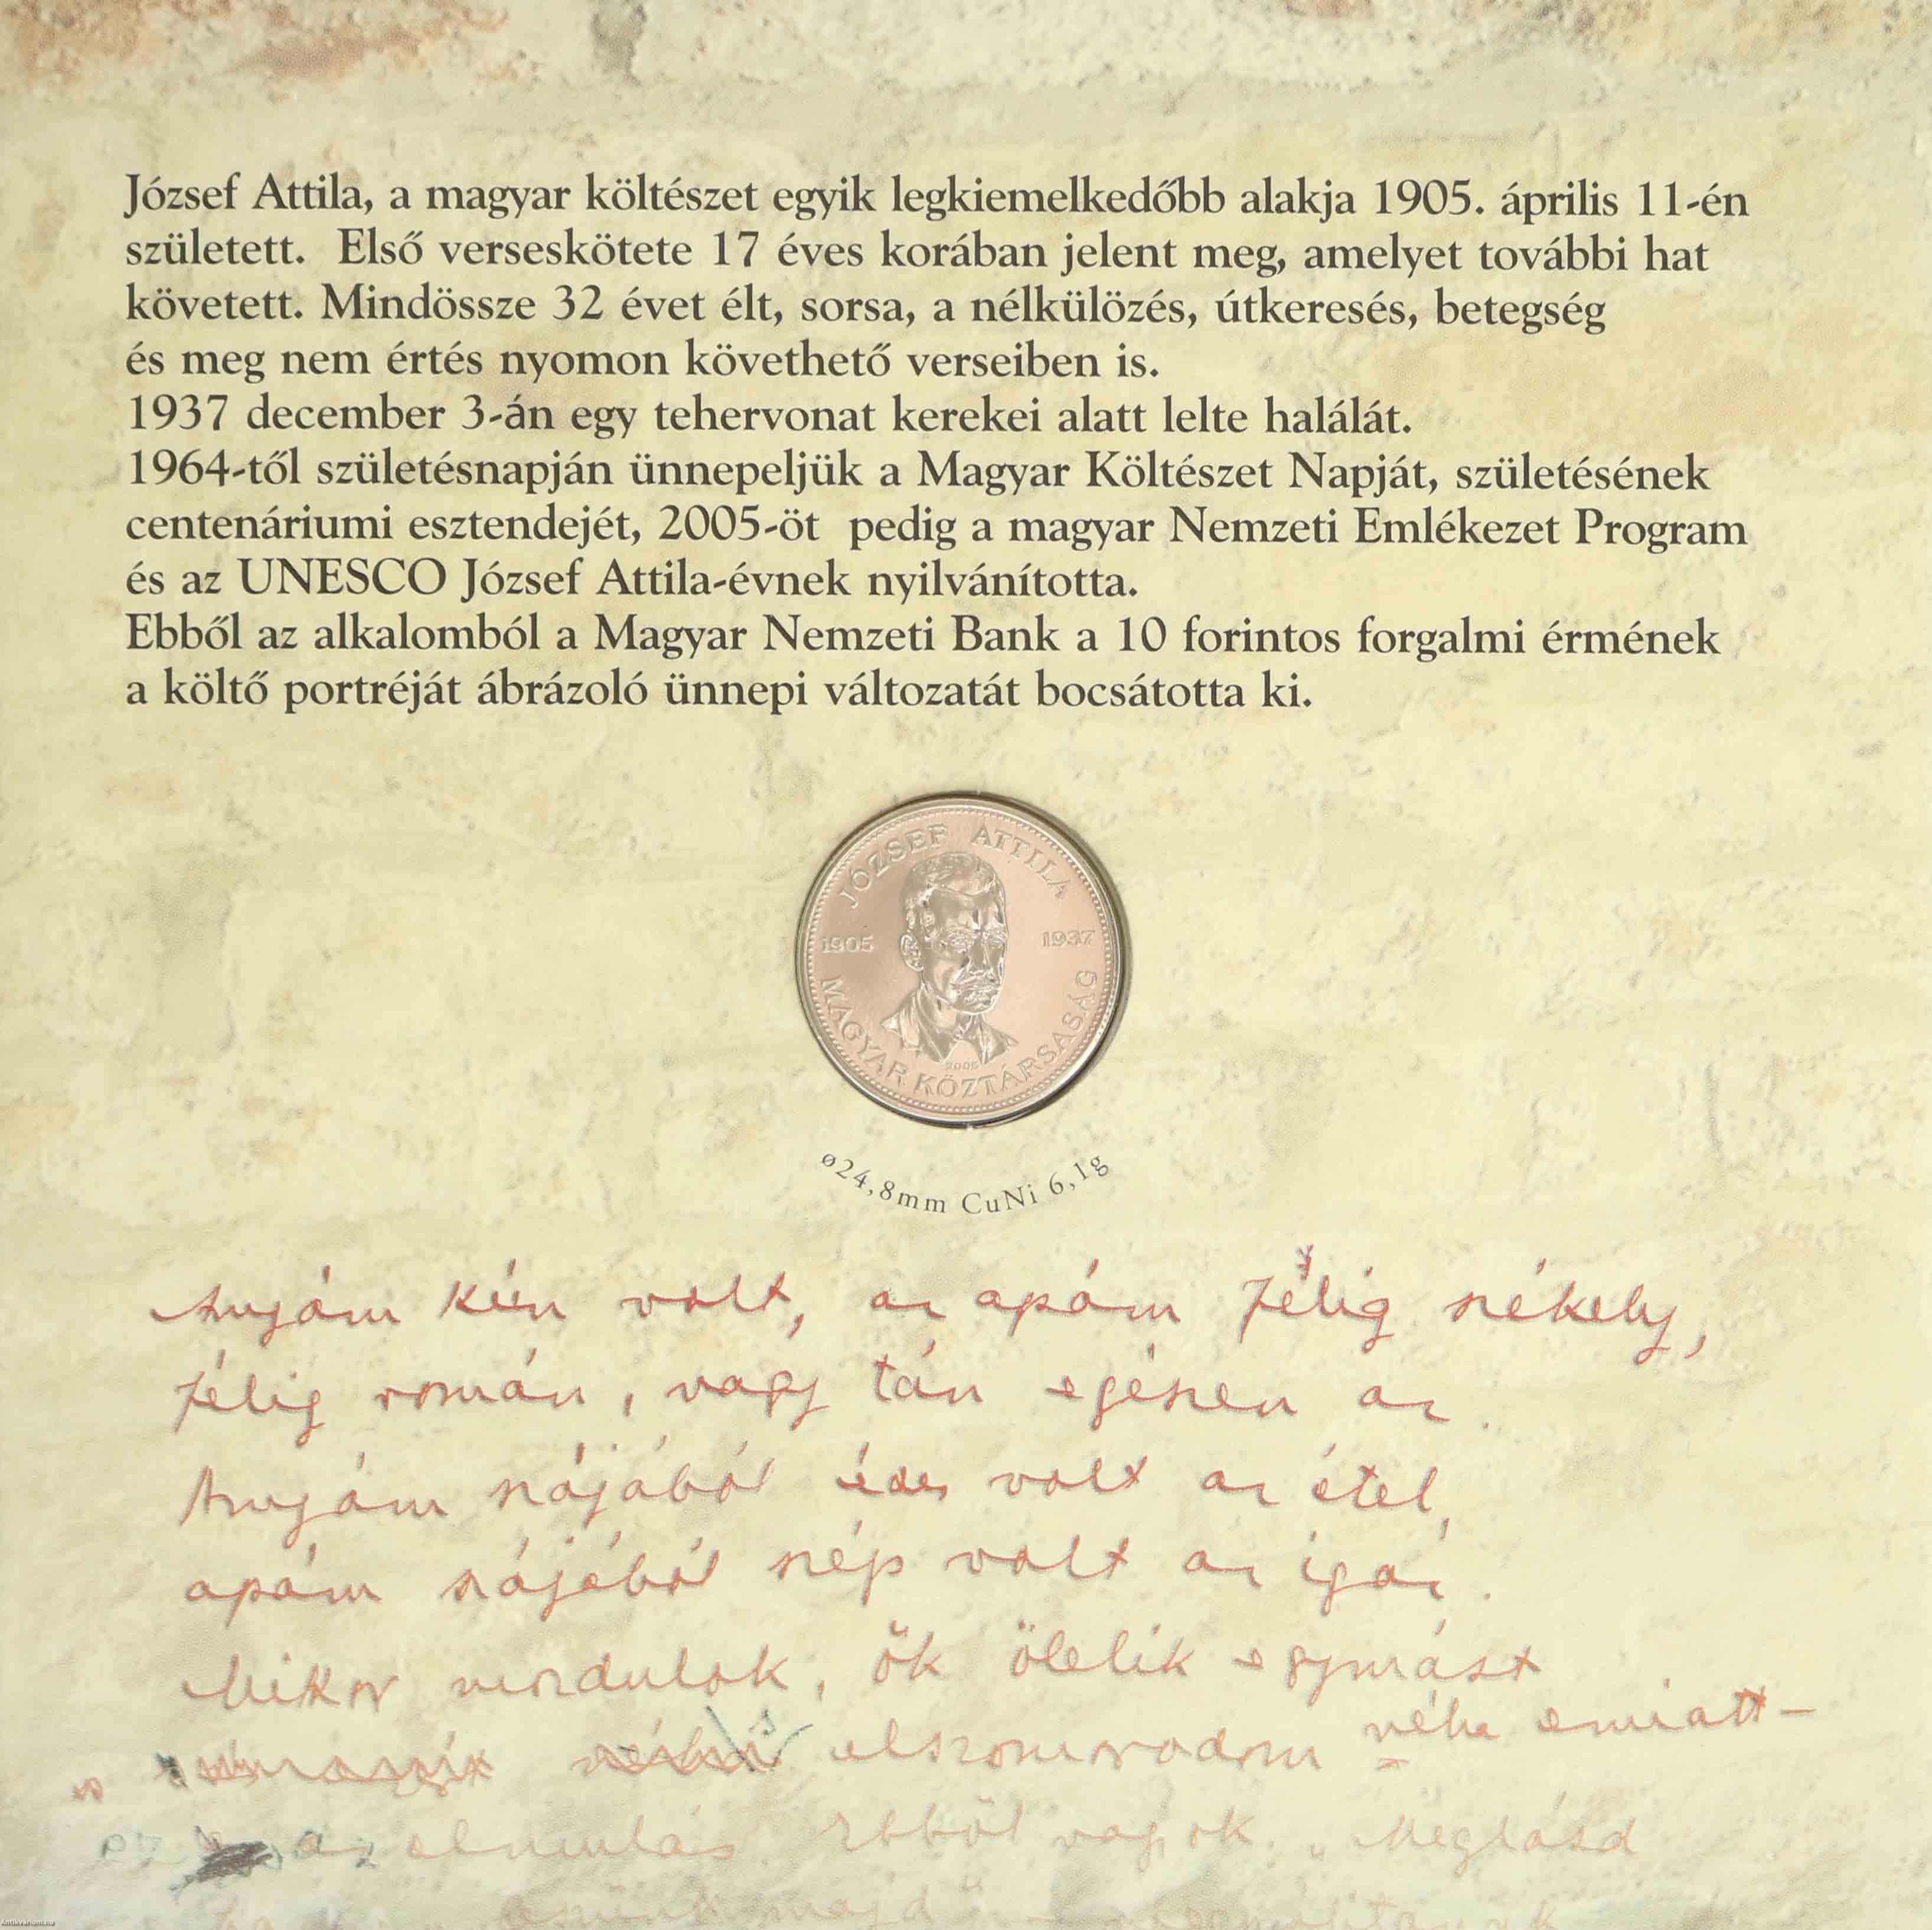 József Attila, a magyar költészet egyik legkiemelkedőbb alakja 1905. április 11-én
született. Első verseskötete 17 éves korában jelent meg, amelyet további hat
követett. Mindössze 32 évet élt, sorsa, a nélkülözés, útkeresés, betegség
és meg nem értés nyomon követhető verseiben is.
1937 december 3-án egy tehervonat kerekei alatt lelte halálát.
1964-től születésnapján ünnepeljük a Magyar Költészet Napját, születésének
centenáriumi esztendejét, 2005-öt pedig a magyar Nemzeti Emlékezet Program
és az UNESCO József Attila-évnek nyilvánította.
Ebből az alkalomból a Magyar Nemzeti Bank a 10 forintos forgalmi érmének
a költő portréját ábrázoló ünnepi változatát bocsátotta ki.
JÓZSEF ATTILA
1905 1937
2005
MAGYAR KÖZTÁRSASÁG
ø24,8mm CuNi 6,1g
Anyám kún volt, az apám félig székely,
félig román, vagy tán egészen az.
Anyám szájából édes volt az étel,
apám szájából szép volt az igaz.
Mikor mozdulok, ők ölelik egymást
elszomorodom néha emiatt –
ez az elmulás. Ebből vagyok. „Meglásd
Antikvarium.hu